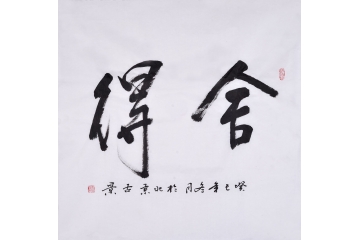 舍得
癸巳年冬月於北京古景